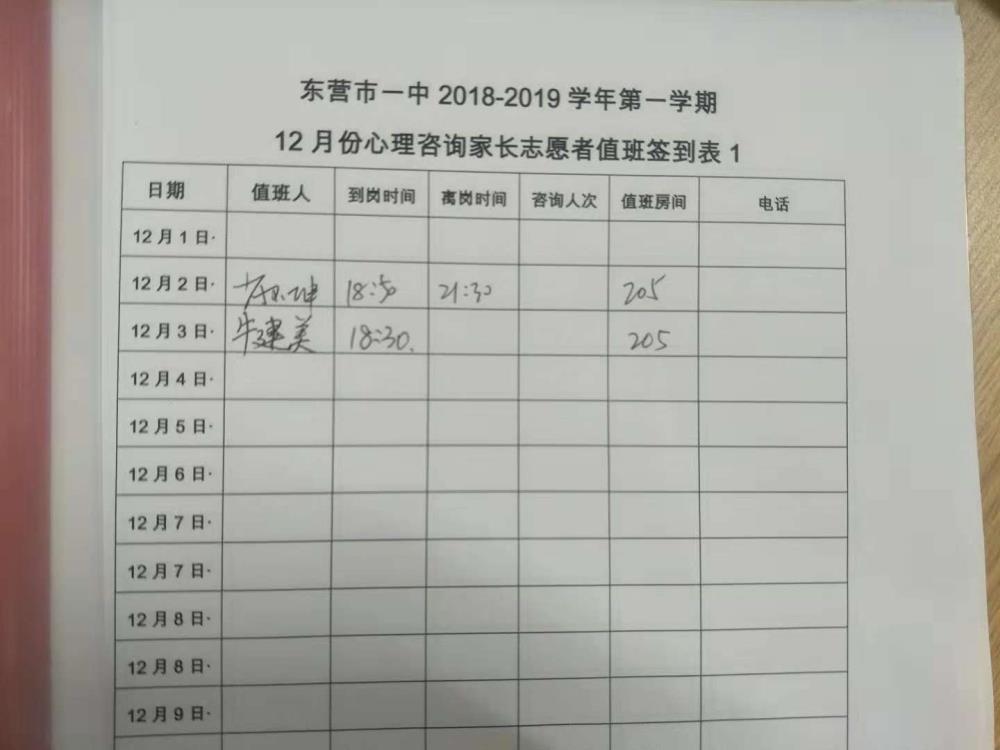 东营市一中 2018-2019 学年第一学期
12 月份心理咨询家长志愿者值班签到表 1
日期 值班人 到岗时间 离岗时间 咨询人次 值班房间 电话
12 月 1 日·
12 月 2 日· 坤 18:50 21:30 205
12 月 3 日· 牛建美 18:30. 205
12 月 4 日·
12 月 5 日·
12 月 6 日·
12 月 7 日·
12 月 7 日·
12 月 8 日·
12 月 8 日·
12 月 9 日·